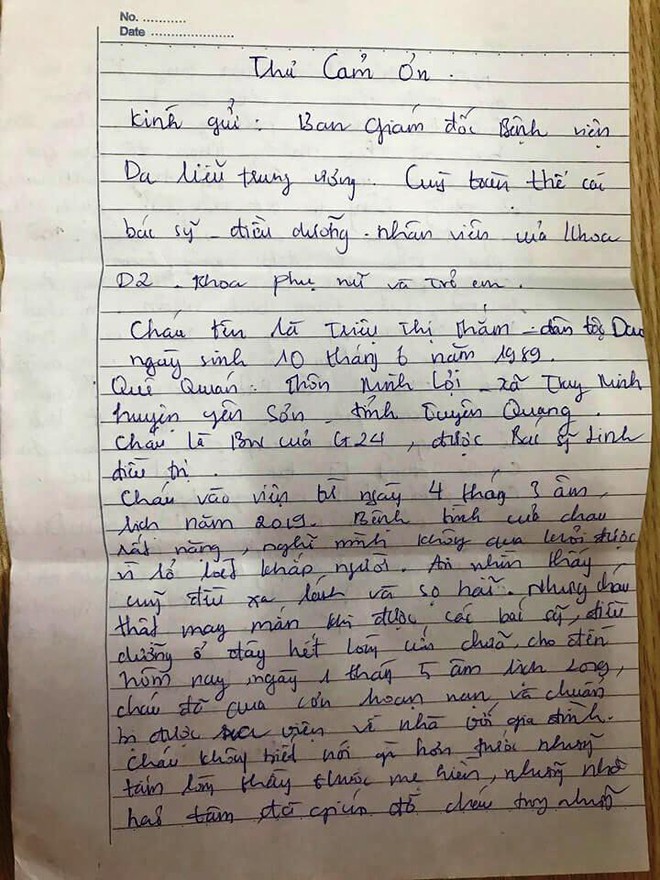 No. ...........
Date .......................
Thư Cảm Ơn.
Kính gửi: Ban Giám đốc Bệnh viện
Da liễu trung ương. Cùng toàn thể các
bác sỹ - điều dưỡng - nhân viên của Khoa
D2. Khoa phụ nữ và Trẻ em.
Cháu tên là Triệu Thị Thắm - dân tộc Dao
ngày sinh 10 tháng 6 năm 1989.
Quê Quán: Thôn Minh Lợi - xã Trung Minh
huyện yên Sơn - tỉnh Tuyên Quang.
Cháu là BN của G24, được Bác sỹ Linh
điều trị.
Cháu vào viện từ ngày 4 tháng 3 âm
lịch năm 2019. Bệnh tình của cháu
rất nặng, nghĩ mình không qua khỏi được
vì lở loét khắp người. Ai nhìn thấy
cũng đều xa lánh và sợ hãi. Nhưng cháu
thật may mắn khi được các bác sỹ, điều
dưỡng ở đây hết lòng cứu chữa, cho đến
hôm nay, ngày 1 tháng 5 âm lịch
cháu đã qua cơn hoạn nạn và chuẩn
bị được ra viện về nhà với gia đình.
Cháu không biết nói gì hơn trước những
tấm lòng thầy thuốc mẹ hiền, những nhà
hảo tâm đã giúp đỡ cháu trong những